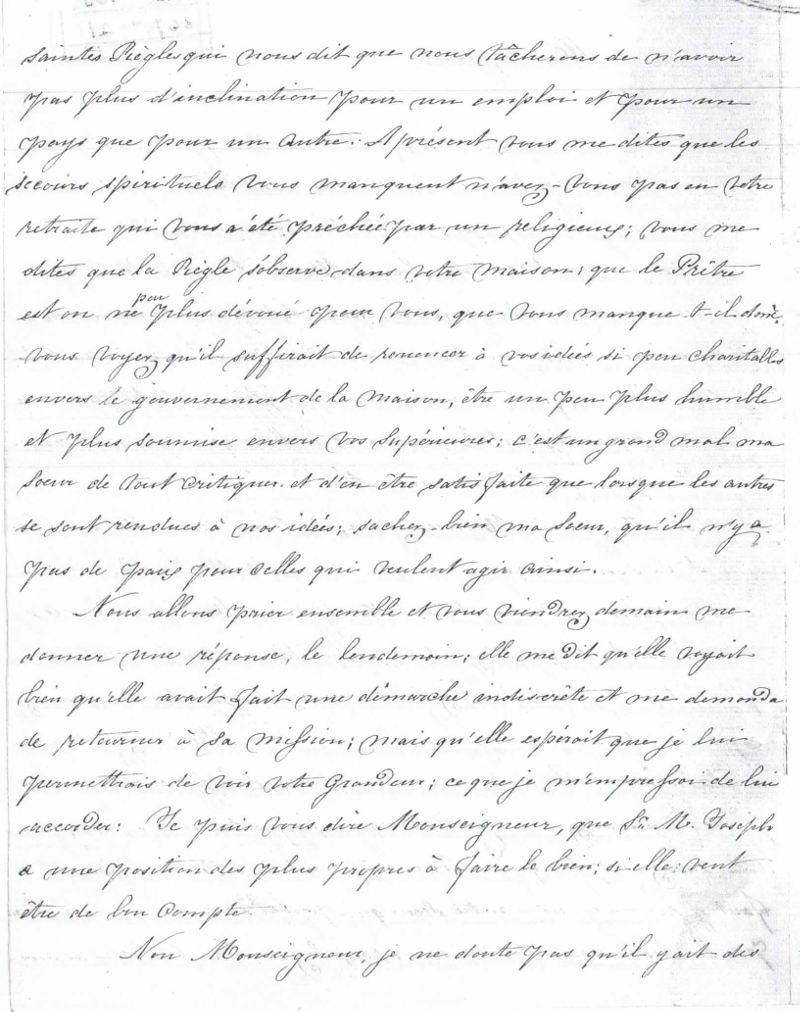 saintes Règles qui nous dit que nous tâcherons de n'avoir
pas plus d'inclination pour un emploi et pour un
pays que pour un autre. Aprésent vous me dites que les
secours spirituels vous manquent n'avez-vous pas eu votre
retraite qui vous a été préchée par un religieux; vous me
dites que la Règle s'observe dans votre maison; que le Prêtre
est on ne peu plus dévoué pour vous, que vous manque t-il donc,
vous voyez qu'il suffirait de renoncer à vos idées si peu charitables
envers le gouvernement de la maison, être un peu plus humble
et plus soumise envers vos Supérieures; c'est un grand mal ma
Soeur de tout critiquer et d'en être satisfaite que lorsque les autres
se sont rendues à nos idées; sachez-bien ma Soeur, qu'il n'y a
pas de paix pour celles qui veulent agir ainsi.
Nous allons prier ensemble et vous viendrez demain me
donner une réponse, le lendemain; elle me dit qu'elle voyait
bien qu'elle avait fait une démarche indiscrête et me demanda
de retourner à sa mission; mais qu'elle espérait que je lui
permettrais de voir votre Grandeur; ce que je m'empressai de lui
accorder: Je puis vous dire Monseigneur, que Sr. M. Joseph
a une position des plus propres à faire le bien; si elle veut
être de bon compte.
Non Monseigneur, je ne doute pas qu'il y ait des